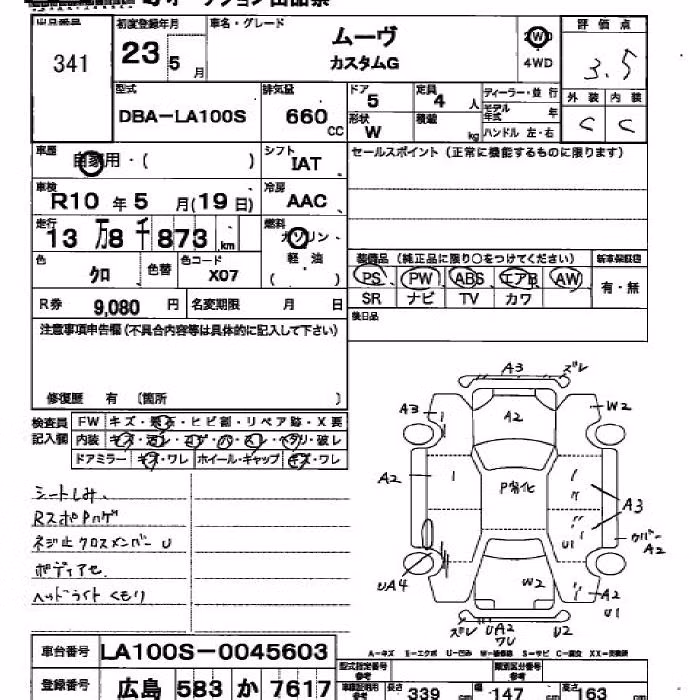 341
初度登録年月
車名・グレード
23 5 月
ムーヴ
カスタムG
2WD
4WD
評価点
3.5
外装 内装
C C
型式
DBA-LA100S
排気量
660 CC
ドア
5
定員
4 人
形状
W
積載
kg
ディーラー・並行
モデル年式 年
ハンドル 左・右
車歴
自家用・( )
シフト
IAT
セールスポイント(正常に機能するものに限ります)
車検
R10 年 5 月(19日)
冷房
AAC
走行
13万8千873 km
燃料
ガソリン
軽油
( )
色
クロ
色替
色コード
X07
装備品(純正品に限り○をつけてください)
新車保証書
PS PW ABS エアB AW
SR ナビ TV カワ
有・無
R券 9,080 円
名変期限 月 日
後日品
注意事項申告欄(不具合内容等は具体的に記入して下さい)
修復歴 有 〔箇所 〕
検査員
記入欄
FW キズ・飛石・ヒビ割・リペア跡・X要
内装 キズ・汚レ・コゲ・穴・スレ・ヘタリ・破レ
ドアミラー キズ・ワレ ホイール・キャップ キズ・ワレ
シートしみ、
RスポPハゲ
ネジ止クロスメンバー U
ボディアセ
ヘッドライトくもり
A3 ズレ
A3 A2 W2
A2 P劣化 A3
U1 クリバー A2
UA4 W2 A2
U1
ズレ UA2 ワレ U2
A-キズ E-エクボ U-凹ミ W-補修跡 S-サビ C-腐食 XX-交換済
車台番号 LA100S-0045603
登録番号 広島 583 か 7617
型式指定番号
参考
類別区分番号
参考
長さ 339 cm 幅 147 cm 高さ 163 cm